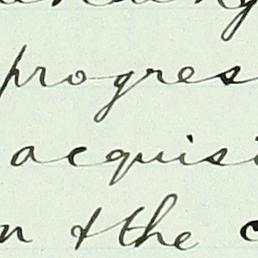 progres
acquisi
n & the